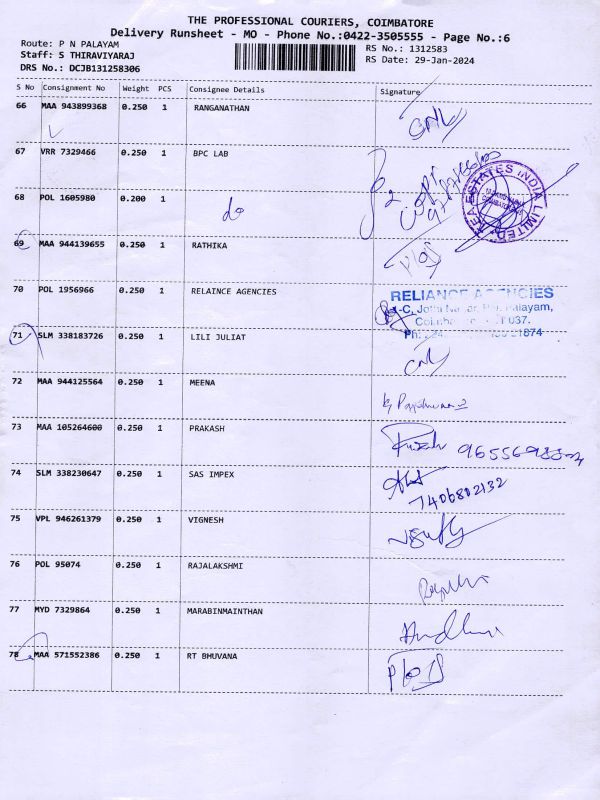 THE PROFESSIONAL COURIERS, COIMBATORE
Delivery Runsheet - MO - Phone No.:0422-3505555 - Page No.:6
Route: P N PALAYAM
RS No.: 1312583
Staff: S THIRAVIYARAJ
RS Date: 29-Jan-2024
DRS No.: DCJB131258306
S No Consignment No Weight PCS Consignee Details Signature
66 MAA 943899368 0.250 1 RANGANATHAN
67 VRR 7329466 0.250 1 BPC LAB
68 POL 1605980 0.200 1 do
REAL ESTATES INDIA LIMITED
69 MAA 944139655 0.250 1 RATHIKA
70 POL 1956966 0.250 1 RELAINCE AGENCIES
RELIANCE AGENCIES
71 SLM 338183726 0.250 1 LILI JULIAT
72 MAA 944125564 0.250 1 MEENA
73 MAA 105264600 0.250 1 PRAKASH
74 SLM 338230647 0.250 1 SAS IMPEX
7406802132
75 VPL 946261379 0.250 1 VIGNESH
76 POL 95074 0.250 1 RAJALAKSHMI
77 MYD 7329864 0.250 1 MARABINMAINTHAN
78 MAA 571552386 0.250 1 RT BHUVANA